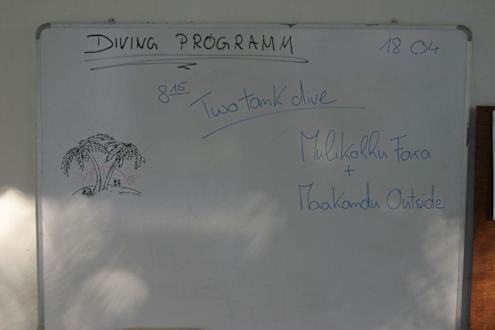 DIVING PROGRAMM 18 04
8 15 Two tank dive
Mulikolhu Fara
+
Maakandu Outside